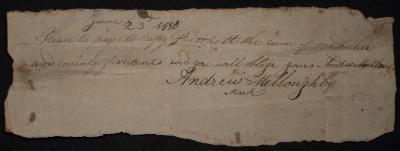 June 23d
Please to pay to the sum of one dollar
and twenty five cents and you will oblige yours Andrew
Andrew Melloughby
Mark